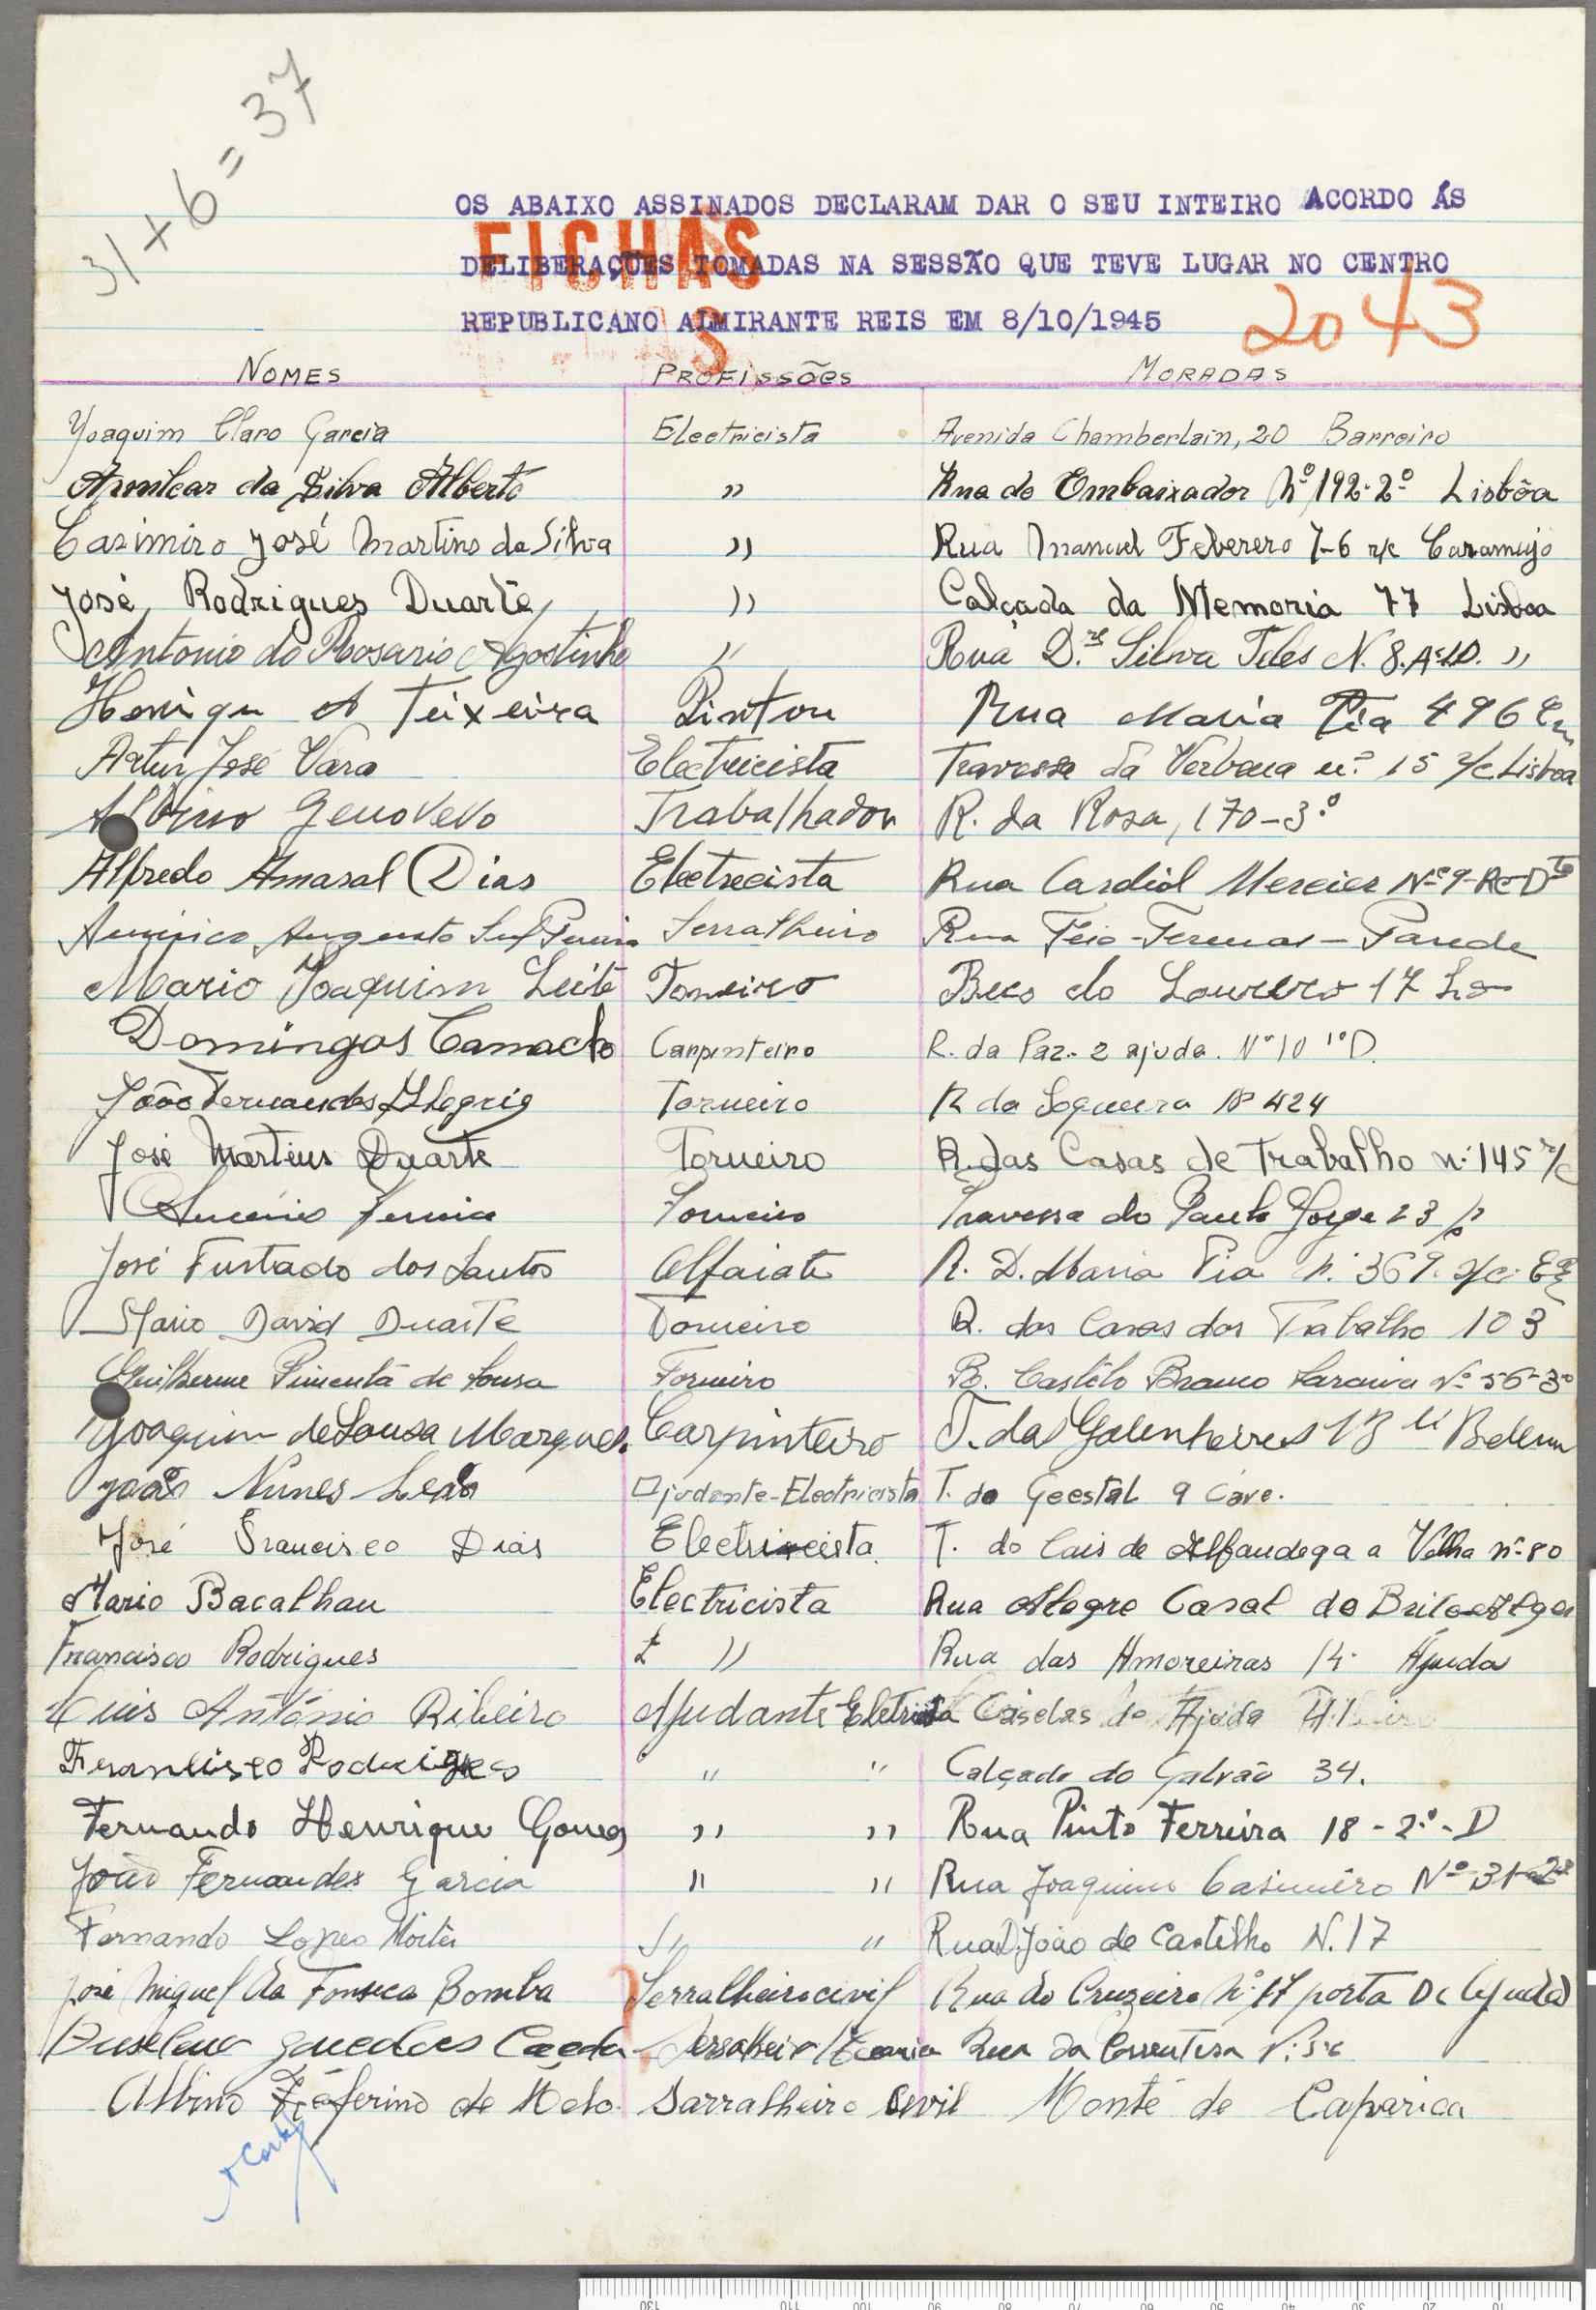 31 + 6 = 37
OS ABAIXO ASSINADOS DECLARAM DAR O SEU INTEIRO ACORDO ÁS
FICHAS
DELIBERAÇÕES TOMADAS NA SESSÃO QUE TEVE LUGAR NO CENTRO
REPUBLICANO ALMIRANTE REIS EM 8/10/1945
2043
NOMES PROFISSÕES MORADAS
Joaquim Claro Garcia Electricista Avenida Chamberlain, 20 Barreiro
Amilcar da Silva Alberto " Rua do Embaixador Nº 192-2º Lisbôa
Casimiro José Martins da Silva " Rua Manuel Feberero 7-6 r/c Caramujo
José Rodrigues Duarte " Calçada da Memoria 77 Lisboa
Antonio do Rosario Agostinho " Rua D.rs Silva Teles N. 8. "
A Teixeira Pintor Rua Maria Pia 496
Artur José Vara Electricista Travessa da Verbena nº 15 r/c Lisboa
Albino Genovevo Trabalhador R. da Rosa, 170-3º
Alfredo Amaral Dias Electrecista Rua Cardial Mercier Nº 9-
Augusto Serralheiro Rua Feio - Parede
Mario Joaquim Leite Torneiro Beco do Loureiro 17
Domingos Camacho Carpinteiro R. da Paz. 2 ajuda. Nº 10 1º D.
João Fernandes Alegria Torneiro R da Nº 424
José Martins Duarte Torneiro R. das Casas de Trabalho nº 145 r/c
Torneiro Travessa do Paulo Jorge 23
José Furtado dos Santos Alfaiate R. D. Maria Pia n. 369. r/c
Mario David Duarte Torneiro R. das Casas dos Trabalho 103
Guilherme Pimenta de Sousa Torneiro R. Castélo Branco Saraiva Nº 56-3º
Joaquim de Sousa Marques. Carpinteiro T. das Belem
João Nunes Leão Ajudante-Electricista T. do Geestal 9 cave.
José Francisco Dias Electricista T. do Cais de Alfandega a Velha nº 80
Mario Bacalhau Electricista Rua Alegre Casal do
Francisco Rodrigues " Rua das Amoreiras Ajuda
Luis António Ribeiro Ajudante Eletrista Caselas da Ajuda
Rodrigues " " Calçada do Galvão 34.
Fernando Henrique Gomes " " Rua Pinto Ferreira 18 - 2º - D
João Fernandes Garcia " " Rua Joaquim Casimiro Nº 31
Fernando Lopes " " Rua D. João de Castilho N. 17
José Miguel da Fonseca Bomba Serralheiro civil Rua do Cruzeiro Nº 17 porta D (Ajuda)
Guedes Rua da
Albino Zéferino de Melo Sarralheiro Civil Monte de Caparica